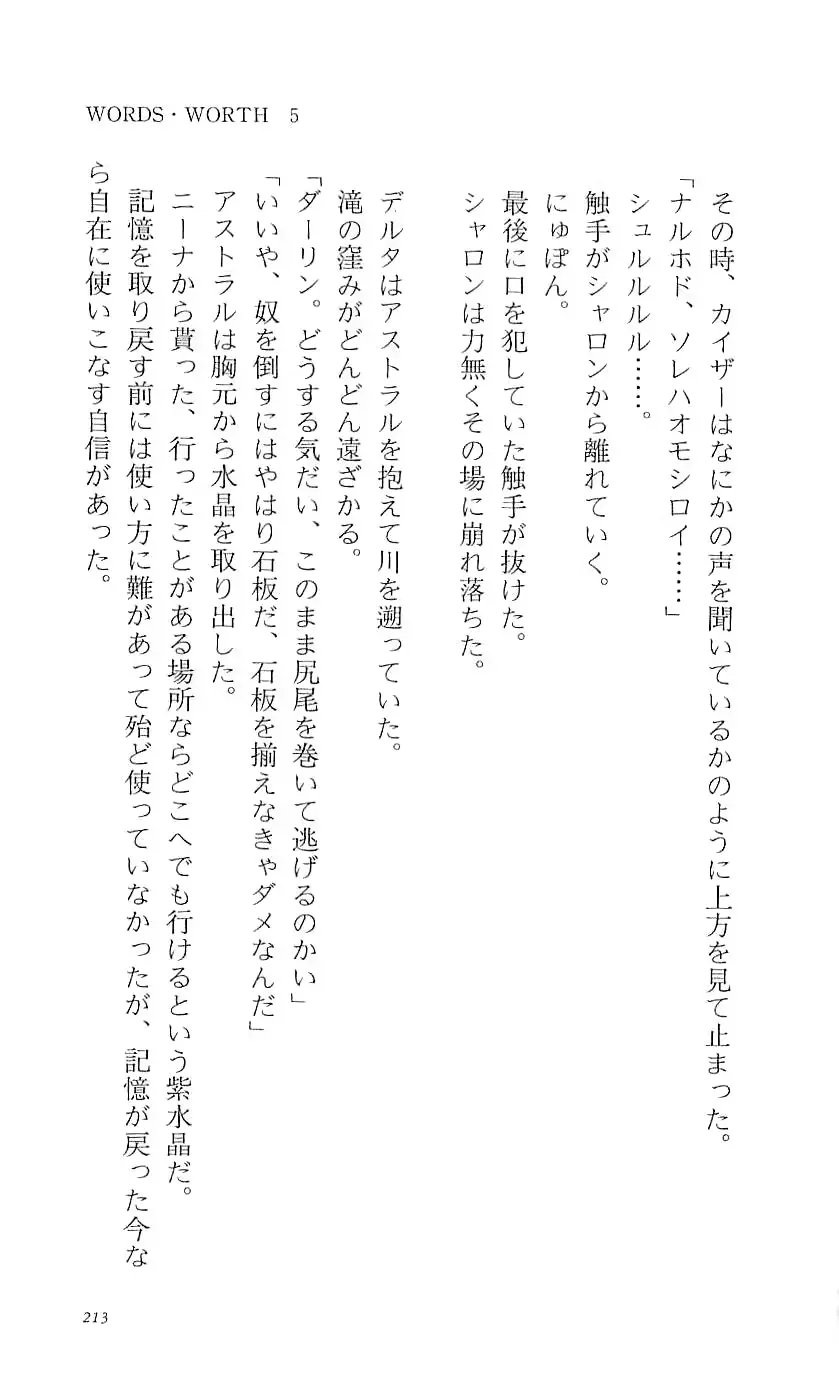 WORDS・WORTH 5
その時、カイザーはなにかの声を聞いているかのように上方を見て止まった。
「ナルホド、ソレハオモシロイ……」
シュルルルル……。
触手がシャロンから離れていく。
にゅぽん。
最後に口を犯していた触手が抜けた。
シャロンは力無くその場に崩れ落ちた。
デルタはアストラルを抱えて川を遡っていた。
滝の窪みがどんどん遠ざかる。
「ダーリン。どうする気だい、このまま尻尾を巻いて逃げるのかい」
「いいや、奴を倒すにはやはり石板だ、石板を揃えなきゃダメなんだ」
アストラルは胸元から水晶を取り出した。
ニーナから貰った、行ったことがある場所ならどこへでも行けるという紫水晶だ。
記憶を取り戻す前には使い方に難があって殆ど使っていなかったが、記憶が戻った今な
ら自在に使いこなす自信があった。
213